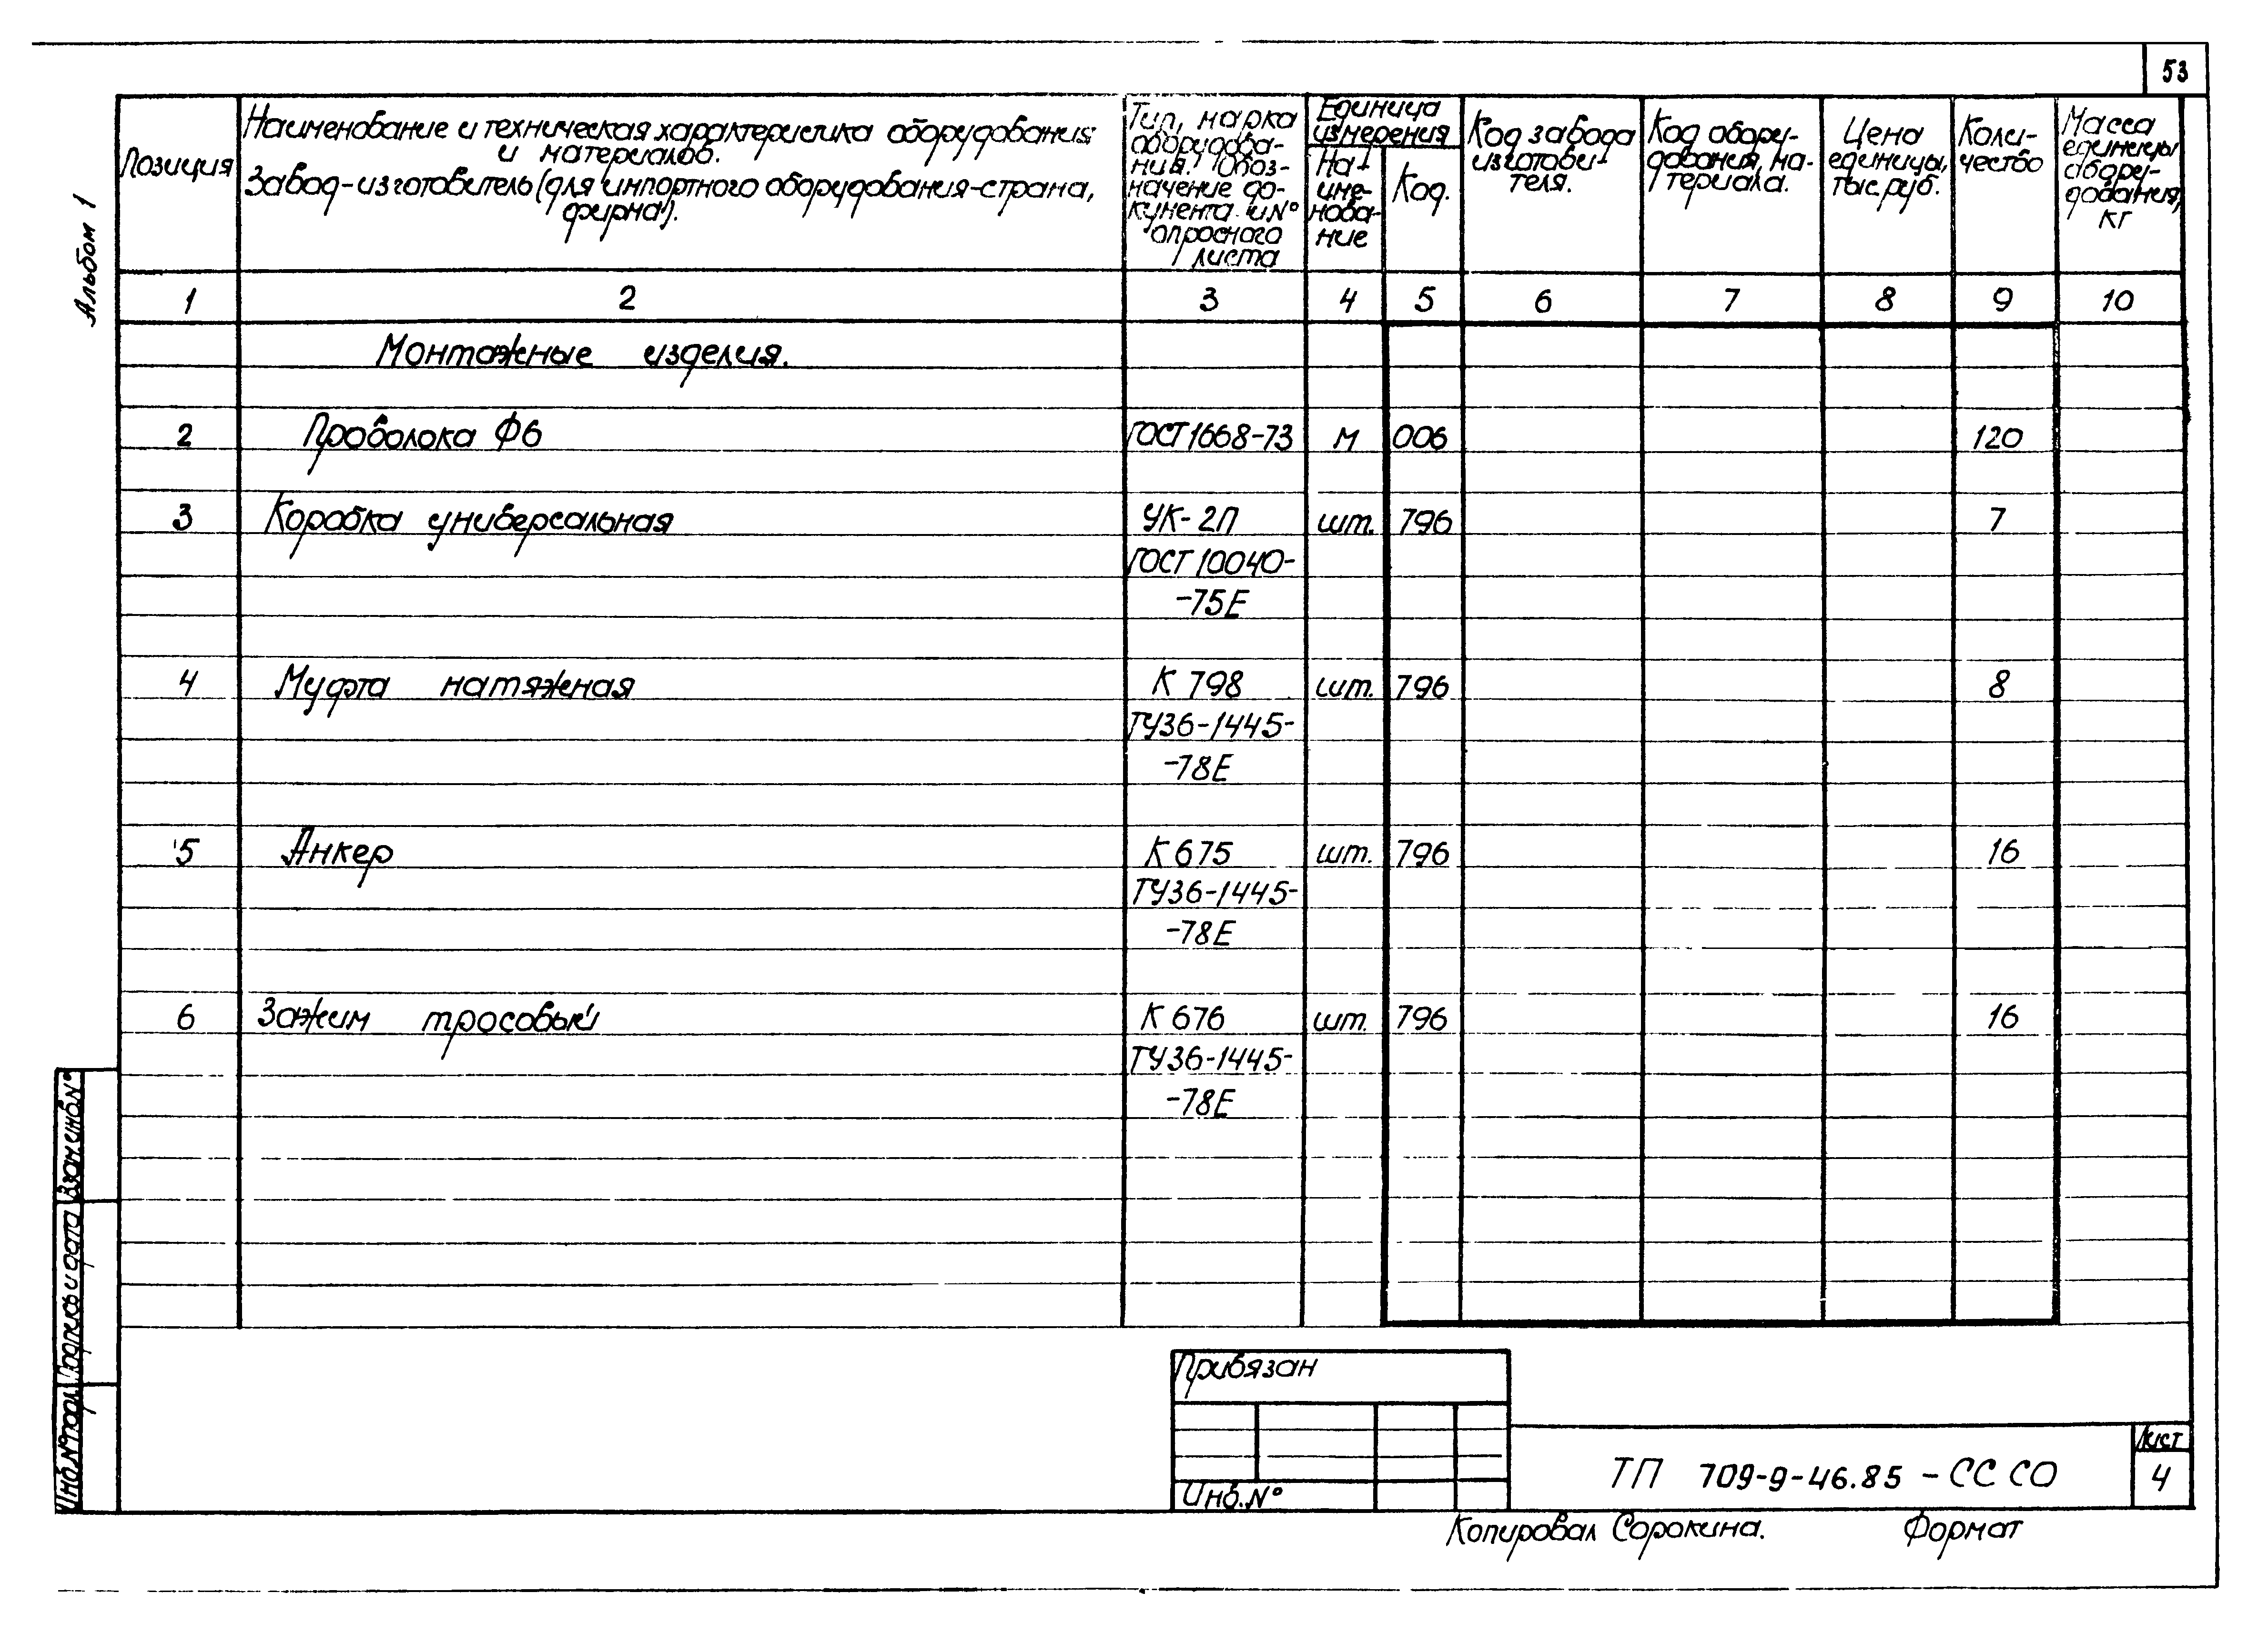 53
Альбом 1
Позиция
Наименование и техническая характеристика оборудования
и материалов.
Завод-изготовитель (для импортного оборудования-страна,
фирма).
Тип, марка
оборудова-
ния. Обоз-
начение до-
кумента и №
опросного
листа
Единица
измерения
На-
име-
нова-
ние
Код.
Код завода
изготови-
теля.
Код обору-
дования, ма-
териала.
Цена
единицы,
тыс.руб.
Коли-
чество
Масса
единицы
обору-
дования,
кг
1 2 3 4 5 6 7 8 9 10
Монтажные изделия.
2 Проволока Ф6 ГОСТ 1668-73 м 006 120
3 Коробка универсальная УК-2П шт. 796 7
ГОСТ 10040-
-75Е
4 Муфта натяжная К 798 шт. 796 8
ТУ36-1445-
-78Е
5 Анкер К 675 шт. 796 16
ТУ36-1445-
-78Е
6 Зажим тросовый К 676 шт. 796 16
ТУ36-1445-
-78Е
Взам.инв.№
Подпись и дата
Инв.№подл.
Привязан
Инв.№
ТП 709-9-46.85 - СС СО
Лист
4
Копировал Сорокина. Формат